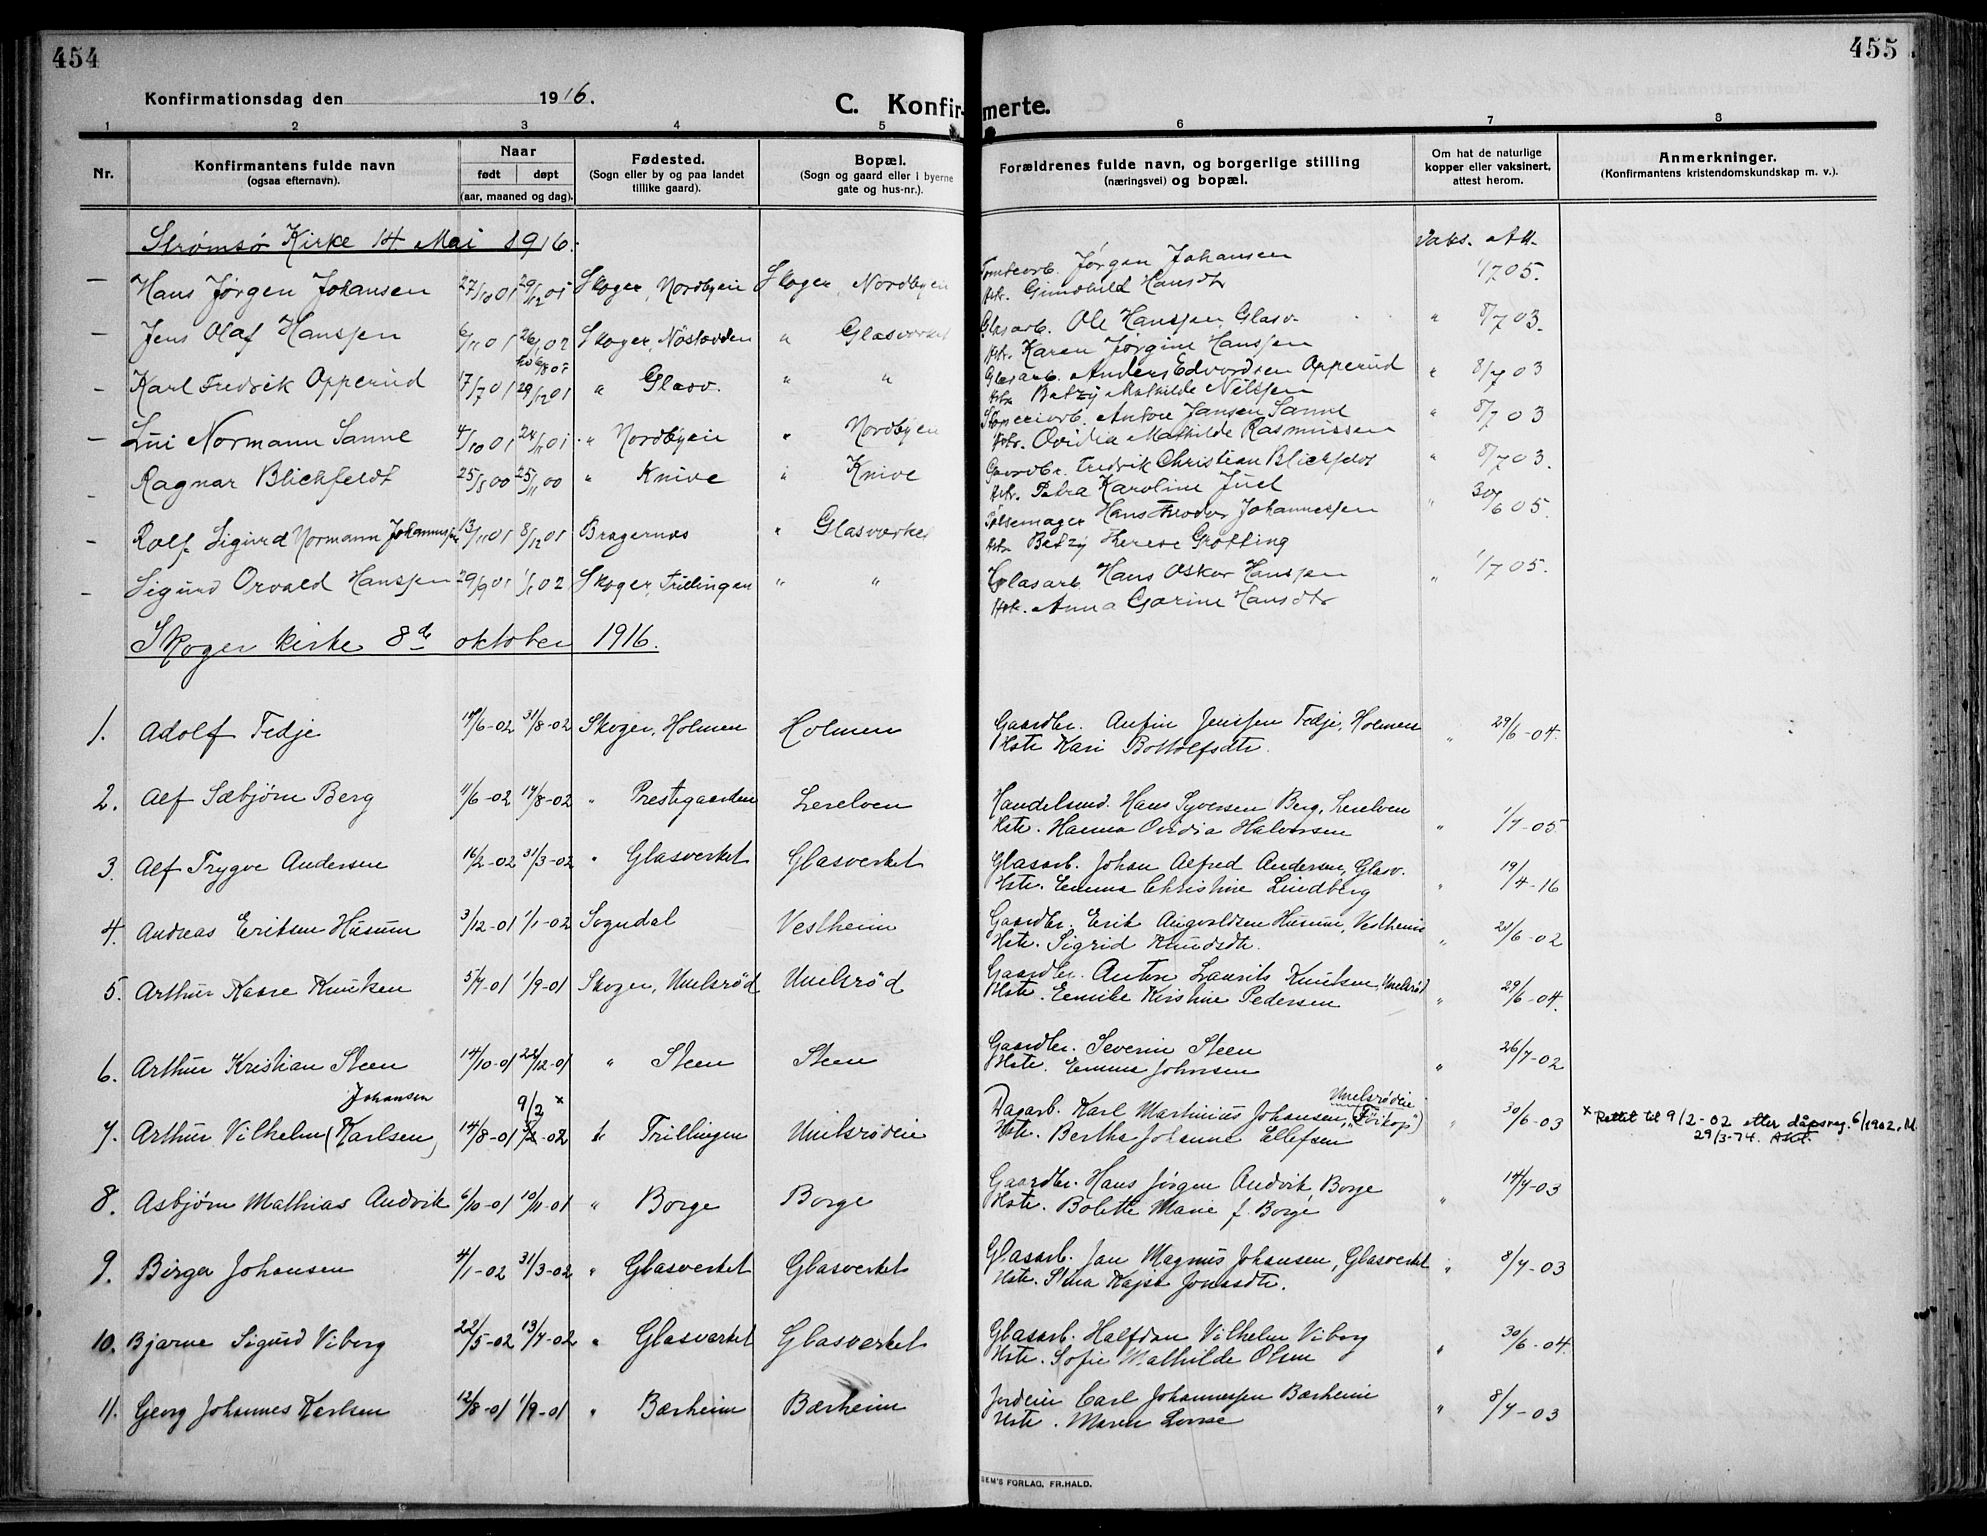 454
455
Konfirmationsdag den 1916.
C. Konfirmerte.
1 2 3 4 5 6 7 8
Nr.
Konfirmantens fulde navn
(ogsaa efternavn).
Naar
født døpt
(aar, maaned og dag).
Fødested.
(Sogn eller by og paa landet
tillike gaard).
Bopæl.
(Sogn og gaard eller i byerne
gate og hus-nr.).
Forældrenes fulde navn, og borgerlige stilling
(næringsvei) og bopæl.
Om hat de naturlige
kopper eller vaksinert,
attest herom.
Anmerkninger.
(Konfirmantens kristendomskundskap m. v.).
Strømsø Kirke 14 Mai 1916.
Vaks. Att.
— Hans Jørgen Johansen 27/10 01 29/12 01 Skoger, Nordbyen Skoger, Nordbyen Tomtearb. Jørgen Johansen 1/7 05.
Hstr. Gunnhild Hansdtr
— Jens Olaf Hanssen 6/11 01 26/1 02 Skoger, Nøstodden " Glasverket Glasarb. Ole Hanssen Glasv. " 8/7 03.
Hstr. Karen Jørgine Hanssen
— Karl Fredrik Opperud 17/7 01 29/12 01 " Glasv. " " Glasarb. Anders Edvardsen Opperud " 8/7 03
Hstr. Betzy Mathilde Nilssen
— Lui Normann Sanne 4/10 01 24/11 01 " Nordbyen " Nordbyen Anton Jansen Sanne " 8/7 03
Hstr. Ovidia Mathilde Rasmussen
— Ragnar Blichfeldt 25/8 00 25/11 00 " Knive " Knive Gaardbr. Fredrik Christian Blichfeldt " 8/7 03.
Hstr. Petra Karoline Juel
— Rolf Sigurd Normann Johannessen 13/11 01 8/12 01 Bragernæs " Glasverket Pølsemager Hans Teodor Johannessen " 30/6 05.
Hstr. Betzy Therese Grotting
— Sigurd Orvald Hanssen 29/9 01 1/1 02 Skoger, Trillingen " " Glasarb. Hans Oskar Hanssen " 1/7 05.
Hstr. Anna Garine Hansdtr
Skoger kirke 8de oktober 1916.
1. Adolf Tedje 17/6-02 31/8-02 Skoger, Holmen Holmen Gaardbr. Anfin Jenssen Tedje, Holmen " 29/6-04.
Hstr. Kari Bottolfsdtr.
2. Alf Sæbjørn Berg 11/6-02 17/8-02 " Prestegaarden Lerelven Handelsmd. Hans Syversen Berg, Lerelven " 1/7-05
Hstr. Hanna Ovidia Halvorsen
3. Alf Trygve Andersen 16/2-02 31/3-02 " Glasverket Glasverket Glasarb. Johan Alfred Andersen, Glasv. " 19/4-16
Hstr. Emma Christine Lindberg
4. Andreas Eriksen Husum 3/12-01 1/1-02 Sogndal Vestheim Gaardbr. Erik Augvaldsen Husum, Vestheim " 21/6-02
Hstr. Sigrid Knudsdtr.
5. Arthur Kaare Knutsen 5/7-01 1/9-01 Skoger, Unelsrød Unelsrød Gaardbr. Anton Laurits Knutsen, Unelsrød " 29/6-04.
Hstr. Emilie Kirstine Pedersen
6. Arthur Kristian Steen 14/10-01 22/12-01 " Steen Steen Gaardbr. Severin Steen " 26/7-02
Hstr. Emma Johnsen
Johansen 9/2 x
7. Arthur Vilhelm (Karlsen) 14/8-01 -02 " Trillingen Unelsrødeie Dagarb. Karl Martinius Johansen, Unelsrødeie " 30/6-03
Hstr. Berthe Johanne Ellefsen
x Rettet til 9/2-02 etter dåpsreg. 6/1902, M.
29/3-74.
8. Asbjørn Mathias Andvik 6/10-01 10/11-01 " Borge Borge Gaardbr. Hans Jørgen Andvik, Borge " 14/7-03
Hstr. Bolette Marie f. Borge
9. Birger Johansen 4/1-02 31/3-02 " Glasverket Glasverket Glasarb. Jan Magnus Johansen, Glasverket " 8/7-03
Hstr. Stina Kajsa Jonasdtr.
10. Bjarne Sigurd Viborg 22/5-02 13/7-02 " Glasverket Glasverket Glasarb. Halfdan Vilhelm Viborg " 30/6-04.
Hstr. Sofie Mathilde Olsen
11. Georg Johannes Karlsen 12/8-01 1/9-01 " Bærheim Bærheim Jordeier Carl Johannessen Bærheim " 8/7-03
Hstr. Maren Lovise
SEM'S FORLAG, FR.HALD.